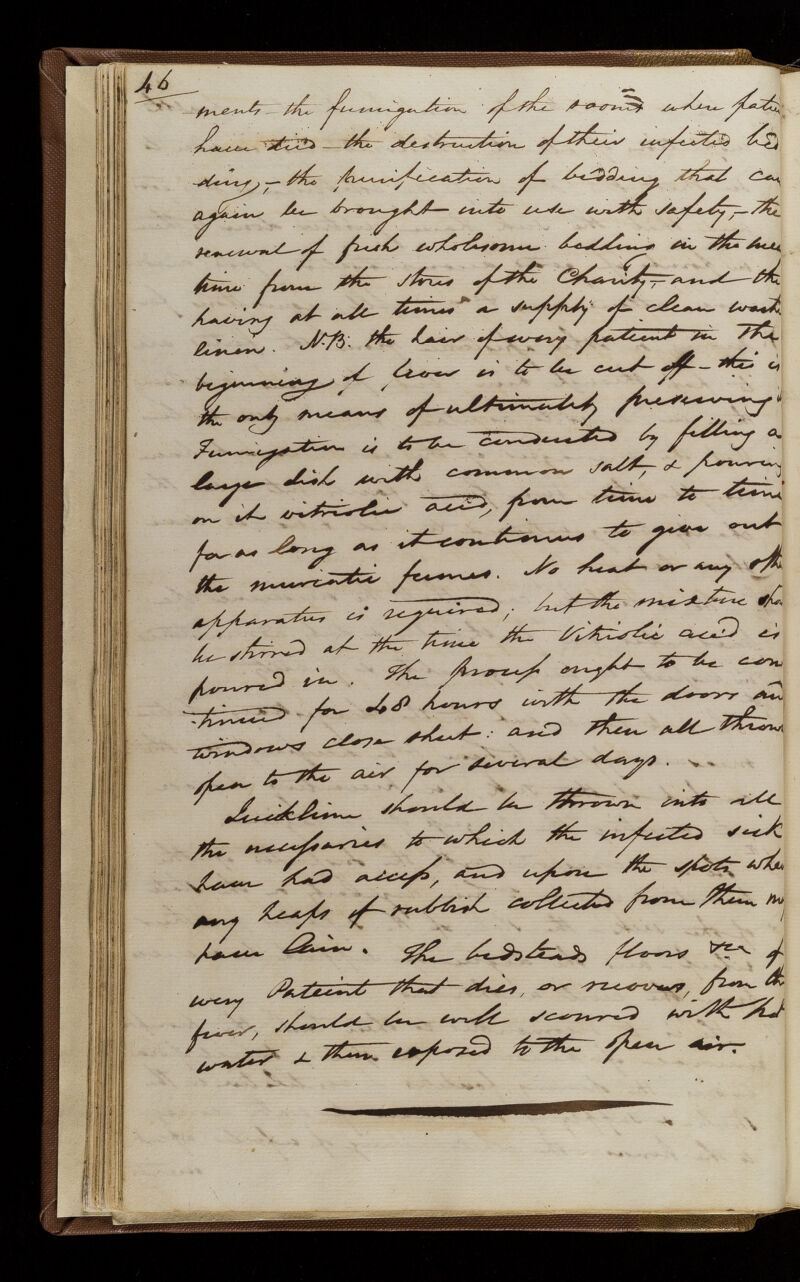 46
ments - the fumigation of the rooms where patie
have died - the destruction of their infected bed
ding, - the purification of bedding that can
again be brought into use with safety, - the
renewal of fresh wholesome bedding in the mea
time from the stores of the Charity, - and the
having at all times a supply of clean wash
linen. N.B. the hair of every patient in the
beginning of fever is to be cut off - this is
the only means of ultimately preserving
Fumigation is to be conducted by filling a
large dish with common salt, & pouring
on it vitriolic acid, from time to time
for as long as it continues to give out
the muriatic fumes. No heat or any oth
apparatus is required; but the mixture sho
be stirred at the time the Vitriolic acid is
poured in. The process ought to be con
tinued for 48 hours with the doors an
windows close shut: and then all thrown
open to the air for several days.
Quicklime should be thrown into all
the necessaries to which the infected sick
have had access, and upon the spots whe
any heaps of rubbish collected from them m
have lain. The bedsteads floors &ca of
every Pateint that dies, or recovers, from th
fever, should be well scoured with hot
water & then exposed to the open air.